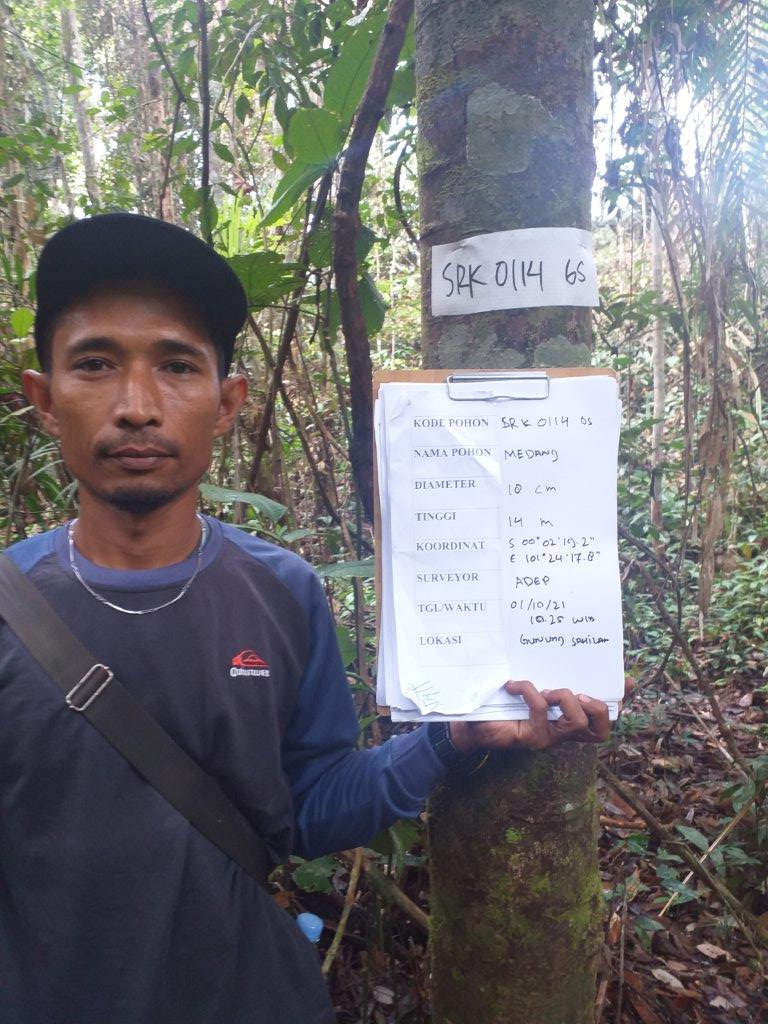 SRK 0114 GS
KODE POHON SRK 0114 GS
NAMA POHON MEDANG
DIAMETER 18 cm
TINGGI 14 m
KOORDINAT S 00° 02' 19.2"
E 101° 24' 17.8"
SURVEYOR ADEP
TGL/WAKTU 01/10/21
10.25 WIB
LOKASI GUNUNG SAHILAN